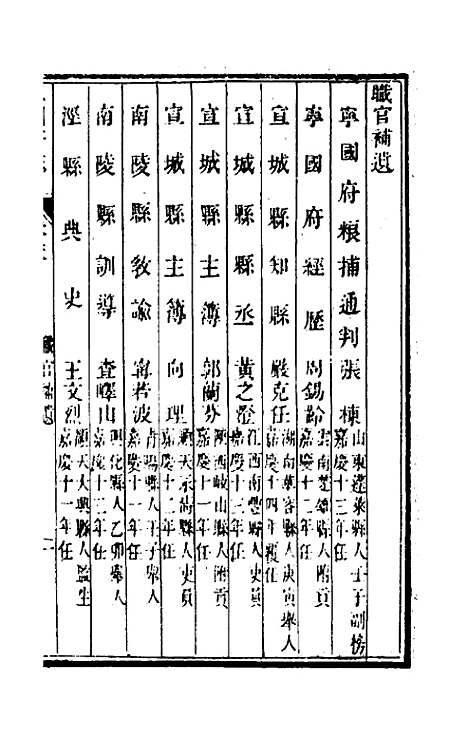 職官補遺
寧國府糧捕通判張棟 山東蓬萊縣人壬子副榜
嘉慶十三年任
寧國府經歷周錫齡 雲南楚雄縣人附貢
嘉慶十二年任
宣城縣知縣嚴克任 湖南華容縣人庚寅舉人
嘉慶十四年獲任
宣城縣縣丞黃之澄 江西南豐縣人吏員
嘉慶十三年任
宣城縣主簿郭蘭芬 陝西岐山縣人附貢
嘉慶十一年任
宣城縣主簿向理 順天永清縣人吏員
嘉慶十二年任
南陵縣教諭甯若波 青陽縣人壬子舉人
嘉慶十一年任
南陵縣訓導查嶧山 興化縣人乙卯舉人
嘉慶十三年任
涇縣典史王文烈 順天大興縣人監生
嘉慶十一年任
職官補遺